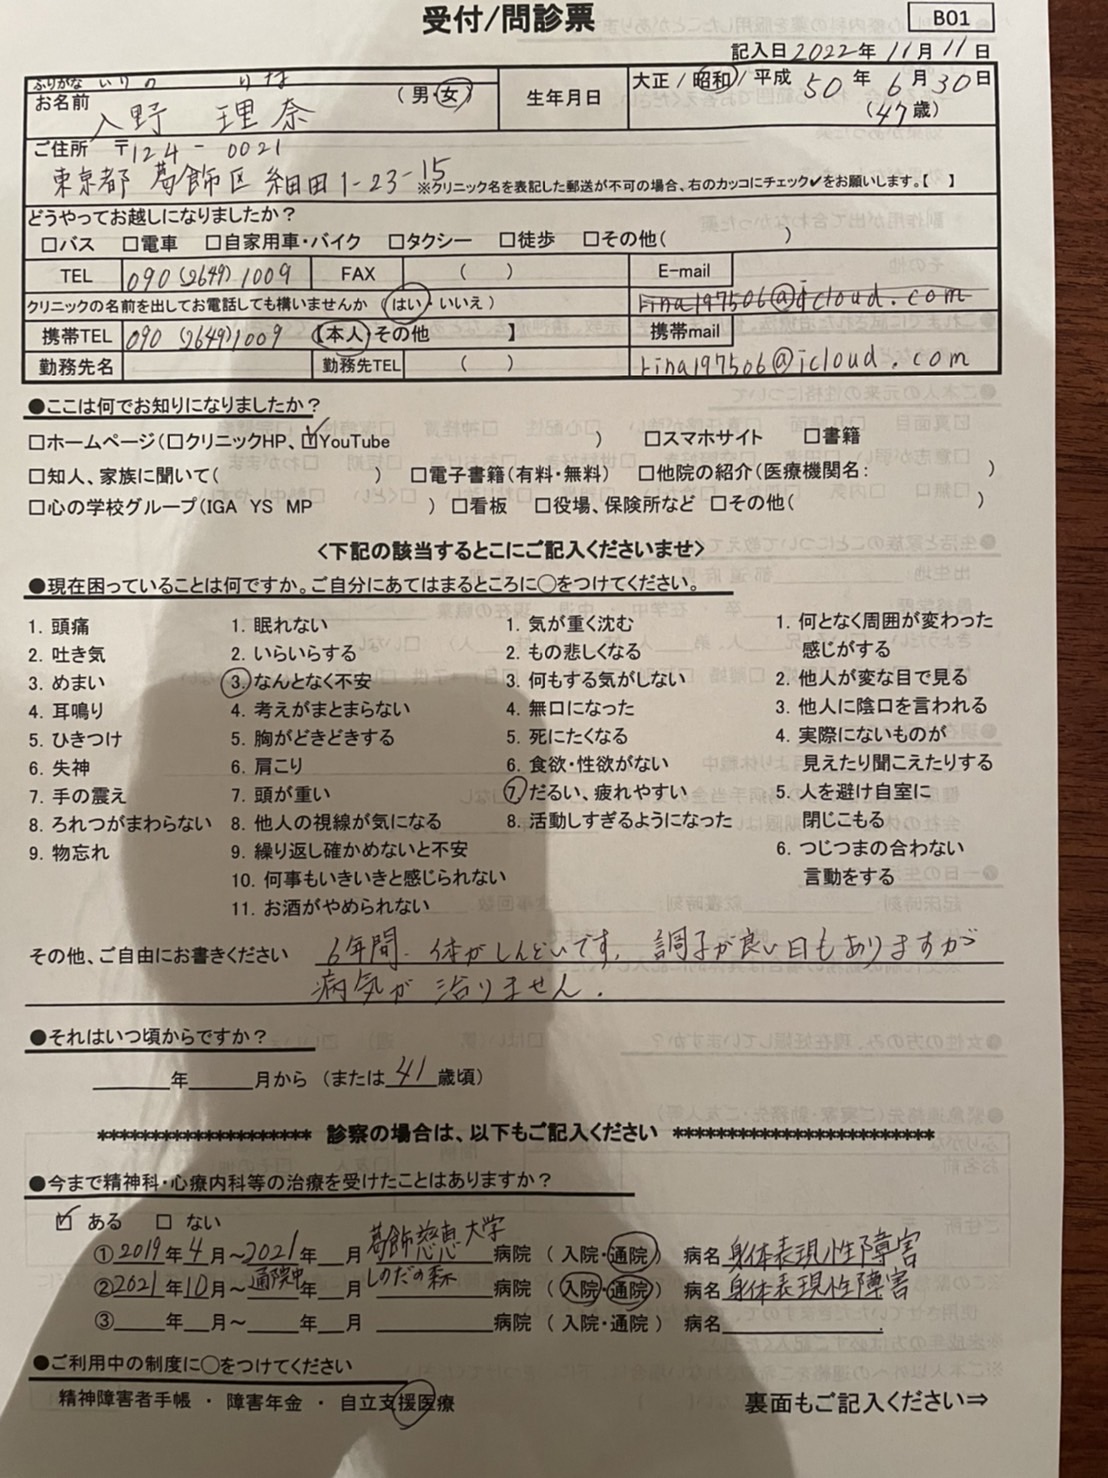 受付/問診票
B01
記入日2022年 11月 11日
ふりがな いりの りな
お名前 入野 理奈 (男・女)
生年月日
大正 / 昭和 / 平成 50 年 6 月 30日
(47歳)
ご住所 〒124 - 0021
東京都 葛飾区 細田1-23-15
※クリニック名を表記した郵送が不可の場合、右のカッコにチェック✔をお願いします。【 】
どうやってお越しになりましたか?
□バス □電車 □自家用車・バイク □タクシー □徒歩 □その他( )
TEL 090 (2649) 1009 FAX ( ) E-mail
クリニックの名前を出してお電話しても構いませんか (はい・いいえ) rina197506@icloud.com
携帯TEL 090 (2649)1009 【本人・その他 】 携帯mail
勤務先名 勤務先TEL ( ) rina197506@icloud.com
●ここは何でお知りになりましたか?
□ホームページ(□クリニックHP、☑YouTube ) □スマホサイト □書籍
□知人、家族に聞いて( ) □電子書籍(有料・無料) □他院の紹介(医療機関名: )
□心の学校グループ(IGA YS MP ) □看板 □役場、保険所など □その他( )
<下記の該当するとこにご記入くださいませ>
●現在困っていることは何ですか。ご自分にあてはまるところに○をつけてください。
1. 頭痛
2. 吐き気
3. めまい
4. 耳鳴り
5. ひきつけ
6. 失神
7. 手の震え
8. ろれつがまわらない
9. 物忘れ
1. 眠れない
2. いらいらする
3. なんとなく不安
4. 考えがまとまらない
5. 胸がどきどきする
6. 肩こり
7. 頭が重い
8. 他人の視線が気になる
9. 繰り返し確かめないと不安
10. 何事もいきいきと感じられない
11. お酒がやめられない
1. 気が重く沈む
2. もの悲しくなる
3. 何もする気がしない
4. 無口になった
5. 死にたくなる
6. 食欲・性欲がない
7. だるい、疲れやすい
8. 活動しすぎるようになった
1. 何となく周囲が変わった
感じがする
2. 他人が変な目で見る
3. 他人に陰口を言われる
4. 実際にないものが
見えたり聞こえたりする
5. 人を避け自室に
閉じこもる
6. つじつまの合わない
言動をする
その他、ご自由にお書きください 6年間. 体がしんどいです. 調子が良い日もありますが
病気が 治りません.
●それはいつ頃からですか?
年 月から (または 41 歳頃)
******************** 診察の場合は、以下もご記入ください ************************
●今まで精神科・心療内科等の治療を受けたことはありますか?
☑ ある □ ない
①2019年 4月~2021年 月 葛飾慈恵大学 病院 (入院・通院) 病名 身体表現性障害
②2021年10月~通院中年 月 しのだの森 病院 (入院・通院) 病名 身体表現性障害
③ 年 月~ 年 月 病院 (入院・通院) 病名
●ご利用中の制度に○をつけてください
精神障害者手帳 ・ 障害年金 ・ 自立支援医療
裏面もご記入ください⇒